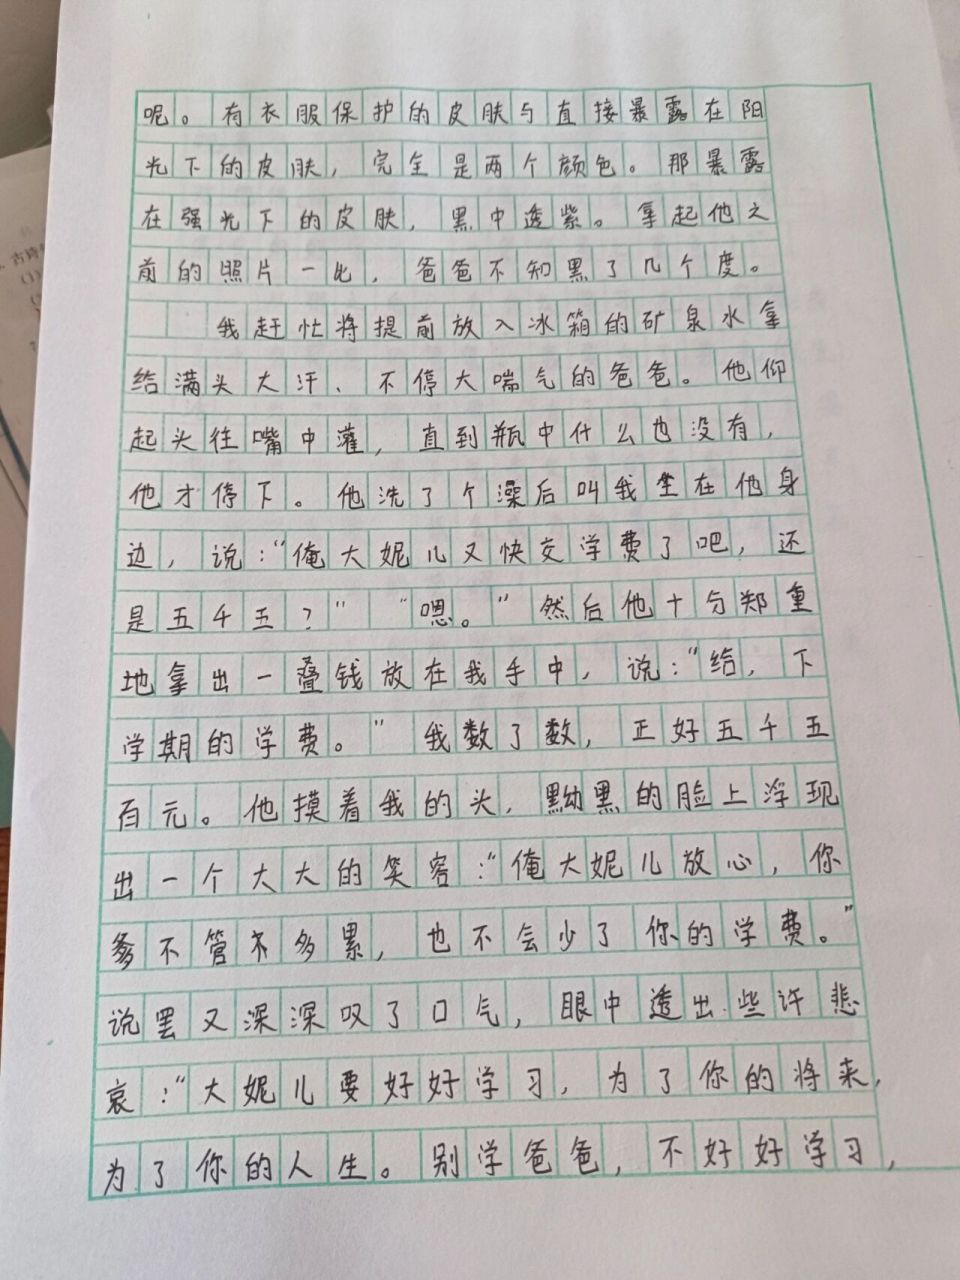 呢。有衣服保护的皮肤与直接暴露在阳
光下的皮肤，完全是两个颜色。那暴露
在强光下的皮肤，黑中透紫。拿起他之
前的照片一比，爸爸不知黑了几个度。
我赶忙将提前放入冰箱的矿泉水拿
给满头大汗、不停大喘气的爸爸。他仰
起头往嘴中灌，直到瓶中什么也没有，
他才停下。他洗了个澡后叫我坐在他身
边，说：“俺大妮儿又快交学费了吧，还
是五千五？”“嗯。”然后他十分郑重
地拿出一叠钱放在我手中，说：“给，下
学期的学费。”我数了数，正好五千五
百元。他摸着我的头，黝黑的脸上浮现
出一个大大的笑容：“俺大妮儿放心，你
爹不管多累，也不会少了你的学费。”
说罢又深深叹了口气，眼中透出些许悲
哀：“大妮儿要好好学习，为了你的将来，
为了你的人生。别学爸爸，不好好学习，